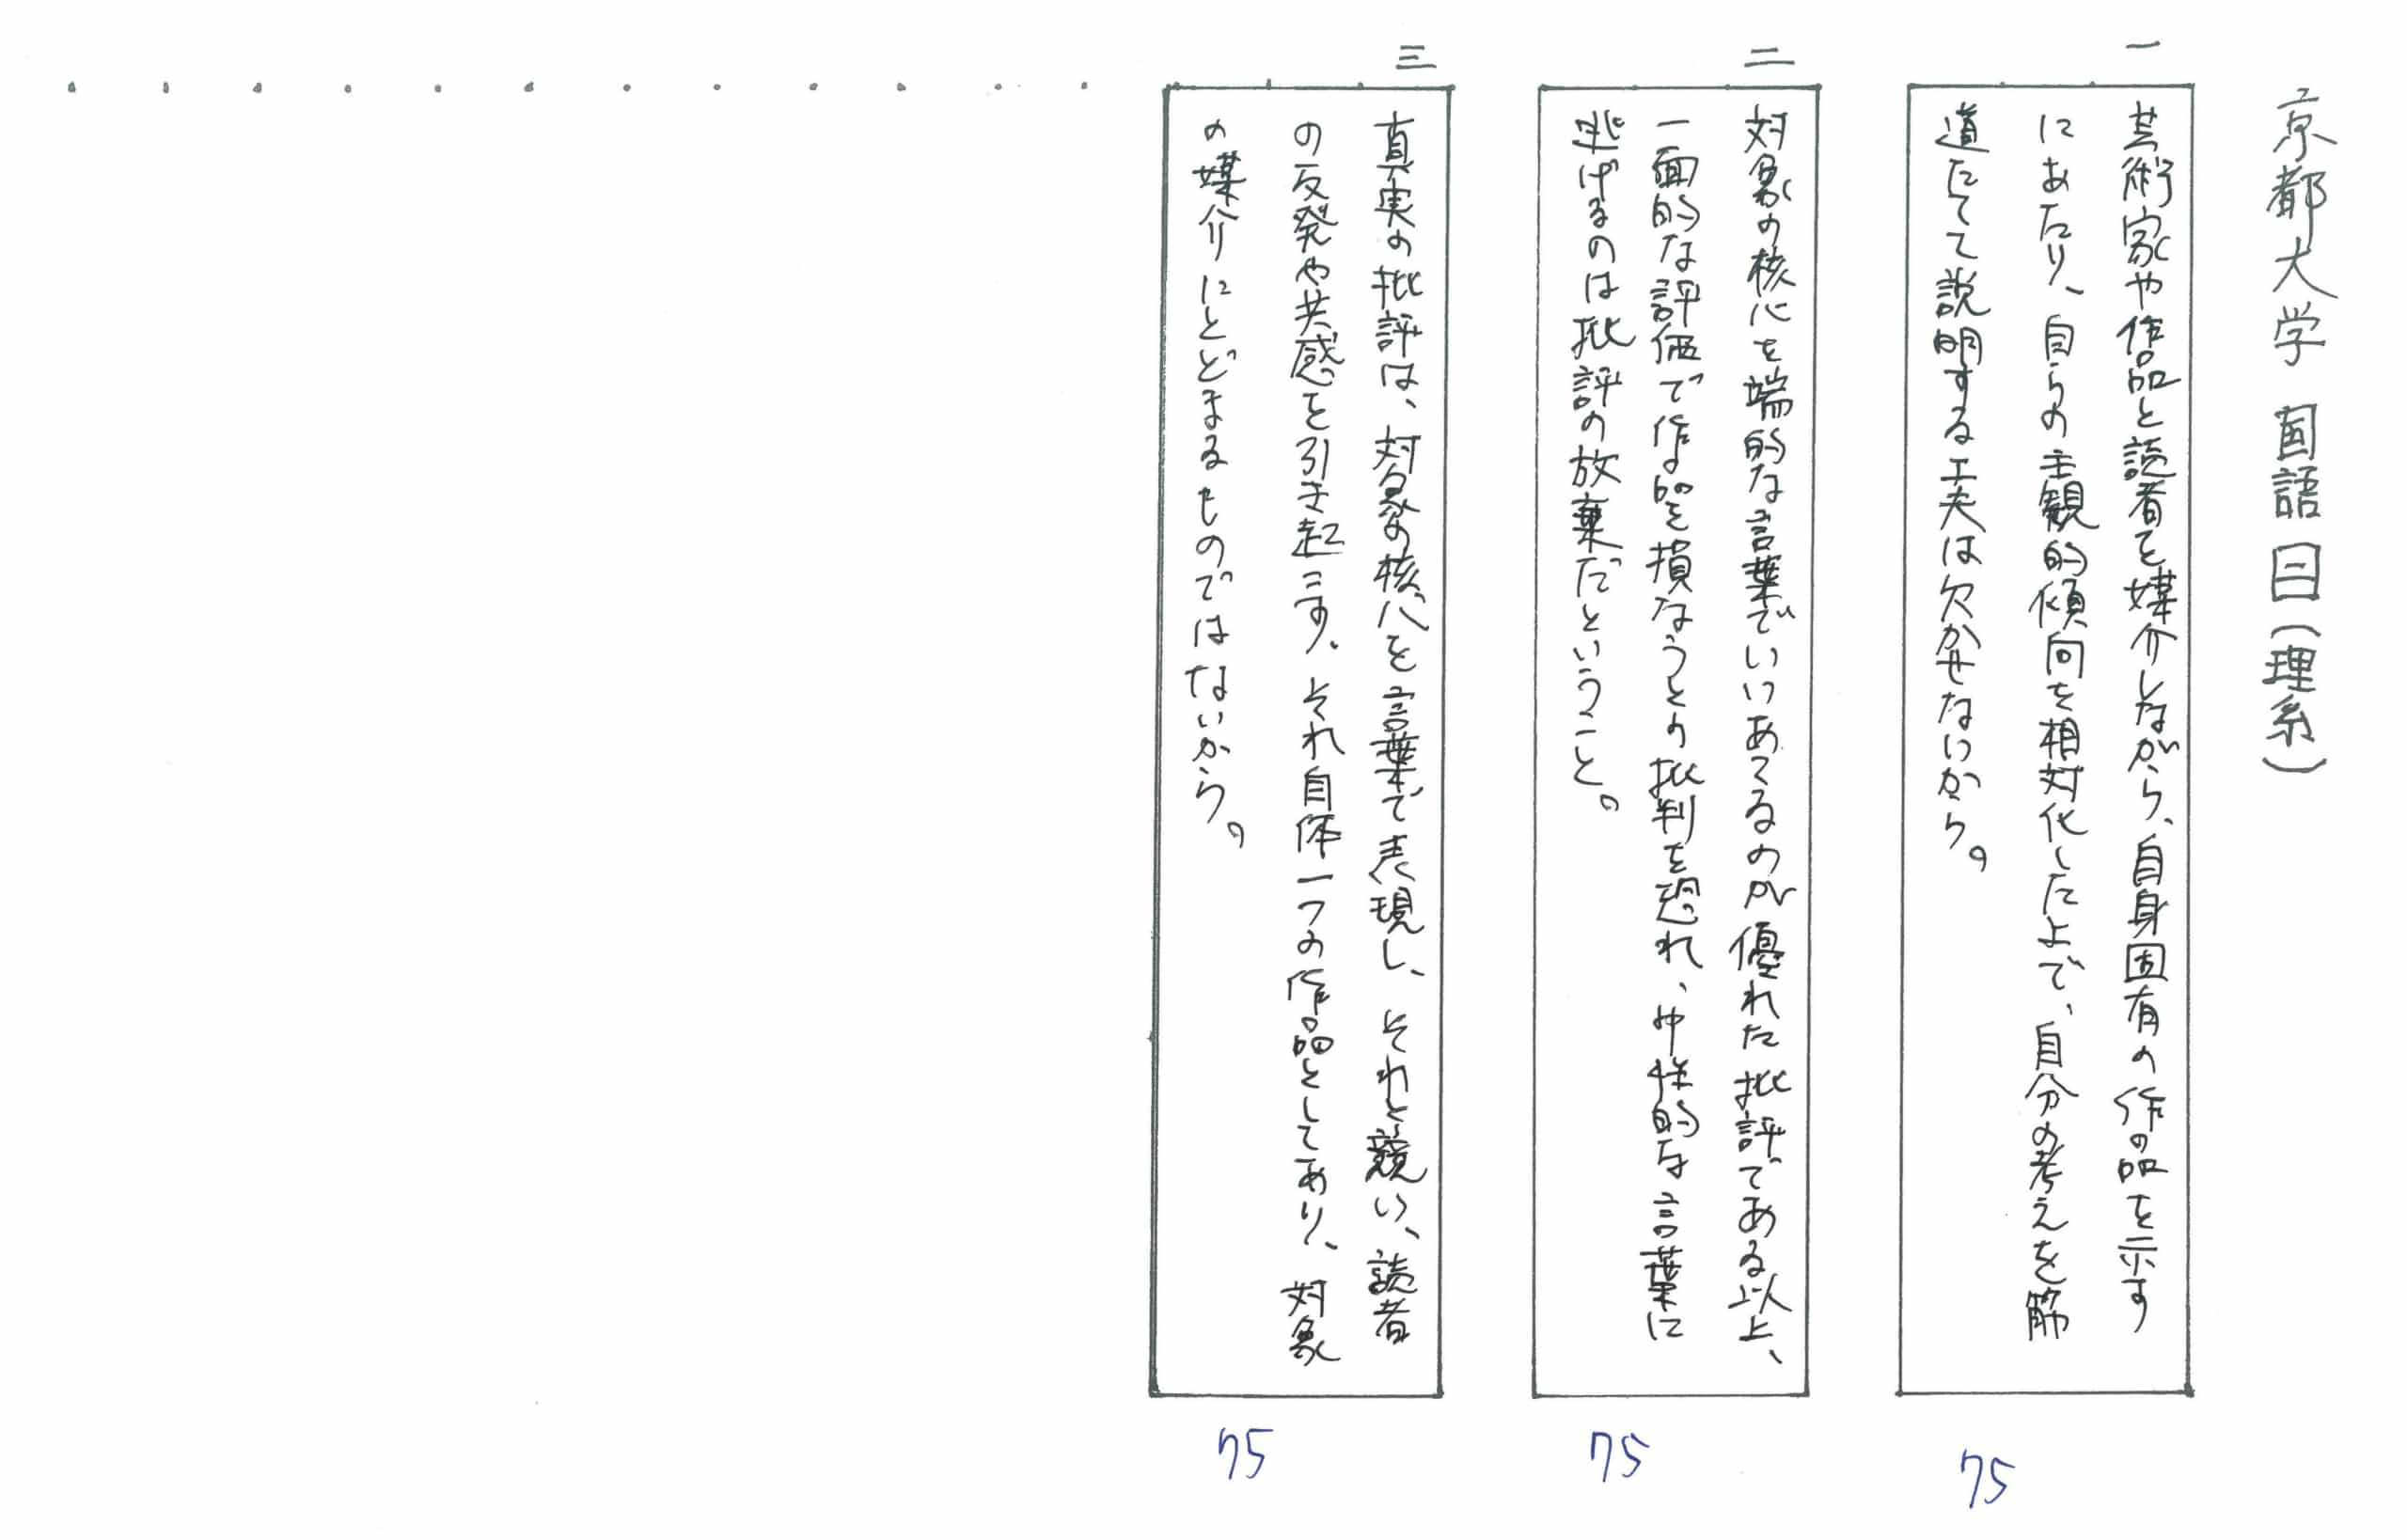 京都大学 国語 二(理系)
一
芸術家や作品と読者を媒介しながら、自身固有の作品を示す
にあたり、自らの主観的傾向を相対化した上で、自分の考えを筋
道たてて説明する工夫は欠かせないから。
75
二
対象の核心を端的な言葉でいいあてるのが優れた批評である以上、
一面的な評価で作品を損なうとの批判を恐れ、中性的な言葉に
逃げるのは批評の放棄だということ。
75
三
真実の批評は、対象の核心を言葉で表現し、それと競い、読者
の反発や共感を引き起こす、それ自体一つの作品としてあり、対象
の媒介にとどまるものではないから。
75